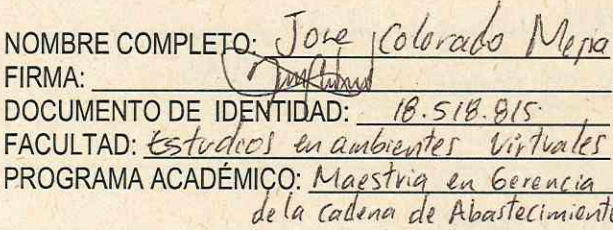 NOMBRE COMPLETO: Jose Colorado Mejia
FIRMA:
DOCUMENTO DE IDENTIDAD: 18.518.815
FACULTAD: Estudios en ambientes virtuales
PROGRAMA ACADÉMICO: Maestria en Gerencia
de la Cadena de Abastecimiento